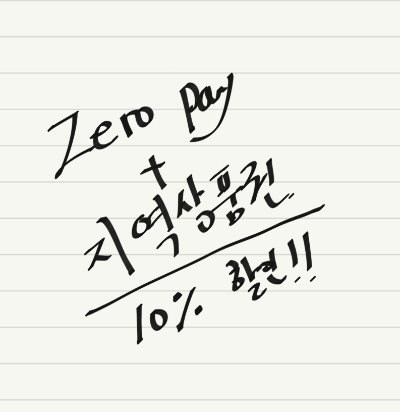 Zero Pay
+
지역상품권
10% 할인!!